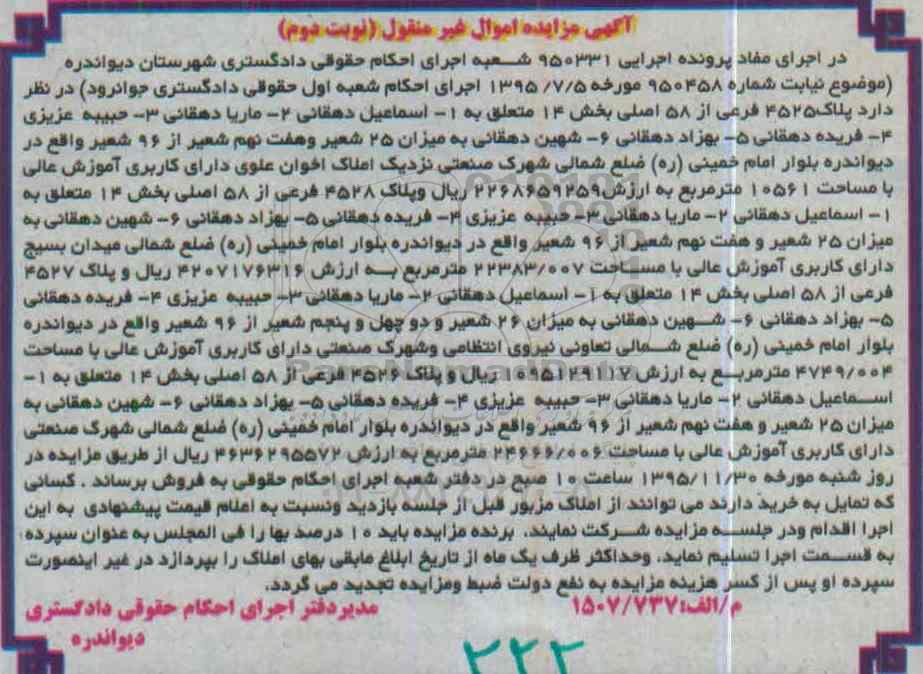 آگهی مزایده اموال غیر منقول (نوبت دوم)
در اجرای مفاد پرونده اجرایی ۹۵۰۳۳۱ شعبه اجرای احکام حقوقی دادگستری شهرستان دیواندره
(موضوع نیابت شماره ۹۵۰۴۵۸ مورخه ۱۳۹۵/۷/۵ اجرای احکام شعبه اول حقوقی دادگستری جوانرود) در نظر
دارد پلاک۴۵۲۵ فرعی از ۵۸ اصلی بخش ۱۴ متعلق به ۱- اسماعیل دهقانی ۲- ماریا دهقانی ۳- حبیبه عزیزی
۴- فریده دهقانی ۵- بهزاد دهقانی ۶- شهین دهقانی به میزان ۲۵ شعیر وهفت نهم شعیر از ۹۶ شعیر واقع در
دیواندره بلوار امام خمینی (ره) ضلع شمالی شهرک صنعتی نزدیک املاک اخوان علوی دارای کاربری آموزش عالی
با مساحت ۱۰۵۶۱ مترمربع به ارزش۲۲۶۸۶۵۹۲۵۹ ریال وپلاک ۴۵۲۸ فرعی از ۵۸ اصلی بخش ۱۴ متعلق به
۱- اسماعیل دهقانی ۲- ماریا دهقانی ۳- حبیبه عزیزی ۴- فریده دهقانی ۵- بهزاد دهقانی ۶- شهین دهقانی به
میزان ۲۵ شعیر و هفت نهم شعیر از ۹۶ شعیر واقع در دیواندره بلوار امام خمینی (ره) ضلع شمالی میدان بسیج
دارای کاربری آموزش عالی با مساحت ۲۲۳۸۳/۰۰۷ مترمربع به ارزش ۴۲۰۷۱۷۶۳۱۶ ریال و پلاک ۴۵۲۷
فرعی از ۵۸ اصلی بخش ۱۴ متعلق به ۱- اسماعیل دهقانی ۲- ماریا دهقانی ۳- حبیبه عزیزی ۴- فریده دهقانی
۵- بهزاد دهقانی ۶- شهین دهقانی به میزان ۲۶ شعیر و دو چهل و پنجم شعیر از ۹۶ شعیر واقع در دیواندره
بلوار امام خمینی (ره) ضلع شمالی تعاونی نیروی انتظامی وشهرک صنعتی دارای کاربری آموزش عالی با مساحت
۴۷۴۹/۰۰۴ مترمربع به ارزش ریال و پلاک ۴۵۲۶ فرعی از ۵۸ اصلی بخش ۱۴ متعلق به ۱-
اسماعیل دهقانی ۲- ماریا دهقانی ۳- حبیبه عزیزی ۴- فریده دهقانی ۵- بهزاد دهقانی ۶- شهین دهقانی به
میزان ۲۵ شعیر و هفت نهم شعیر از ۹۶ شعیر واقع در دیواندره بلوار امام خمینی (ره) ضلع شمالی شهرک صنعتی
دارای کاربری آموزش عالی با مساحت ۲۴۶۶۶/۰۰۶ مترمربع به ارزش ۴۶۳۶۲۹۵۵۷۲ ریال از طریق مزایده در
روز شنبه مورخه ۱۳۹۵/۱۱/۳۰ ساعت ۱۰ صبح در دفتر شعبه اجرای احکام حقوقی به فروش برساند . کسانی
که تمایل به خرید دارند می توانند از املاک مزبور قبل از جلسه بازدید ونسبت به اعلام قیمت پیشنهادی به این
اجرا اقدام ودر جلسه مزایده شرکت نمایند. برنده مزایده باید ۱۰ درصد بها را فی المجلس به عنوان سپرده
به قسمت اجرا تسلیم نماید. وحداکثر ظرف یک ماه از تاریخ ابلاغ مابقی بهای املاک را بپردازد در غیر اینصورت
سپرده او پس از کسر هزینه مزایده به نفع دولت ضبط ومزایده تجدید می گردد.
م/الف:۱۵۰۷/۷۳۷
مدیردفتر اجرای احکام حقوقی دادگستری
دیواندره
۲۲۲